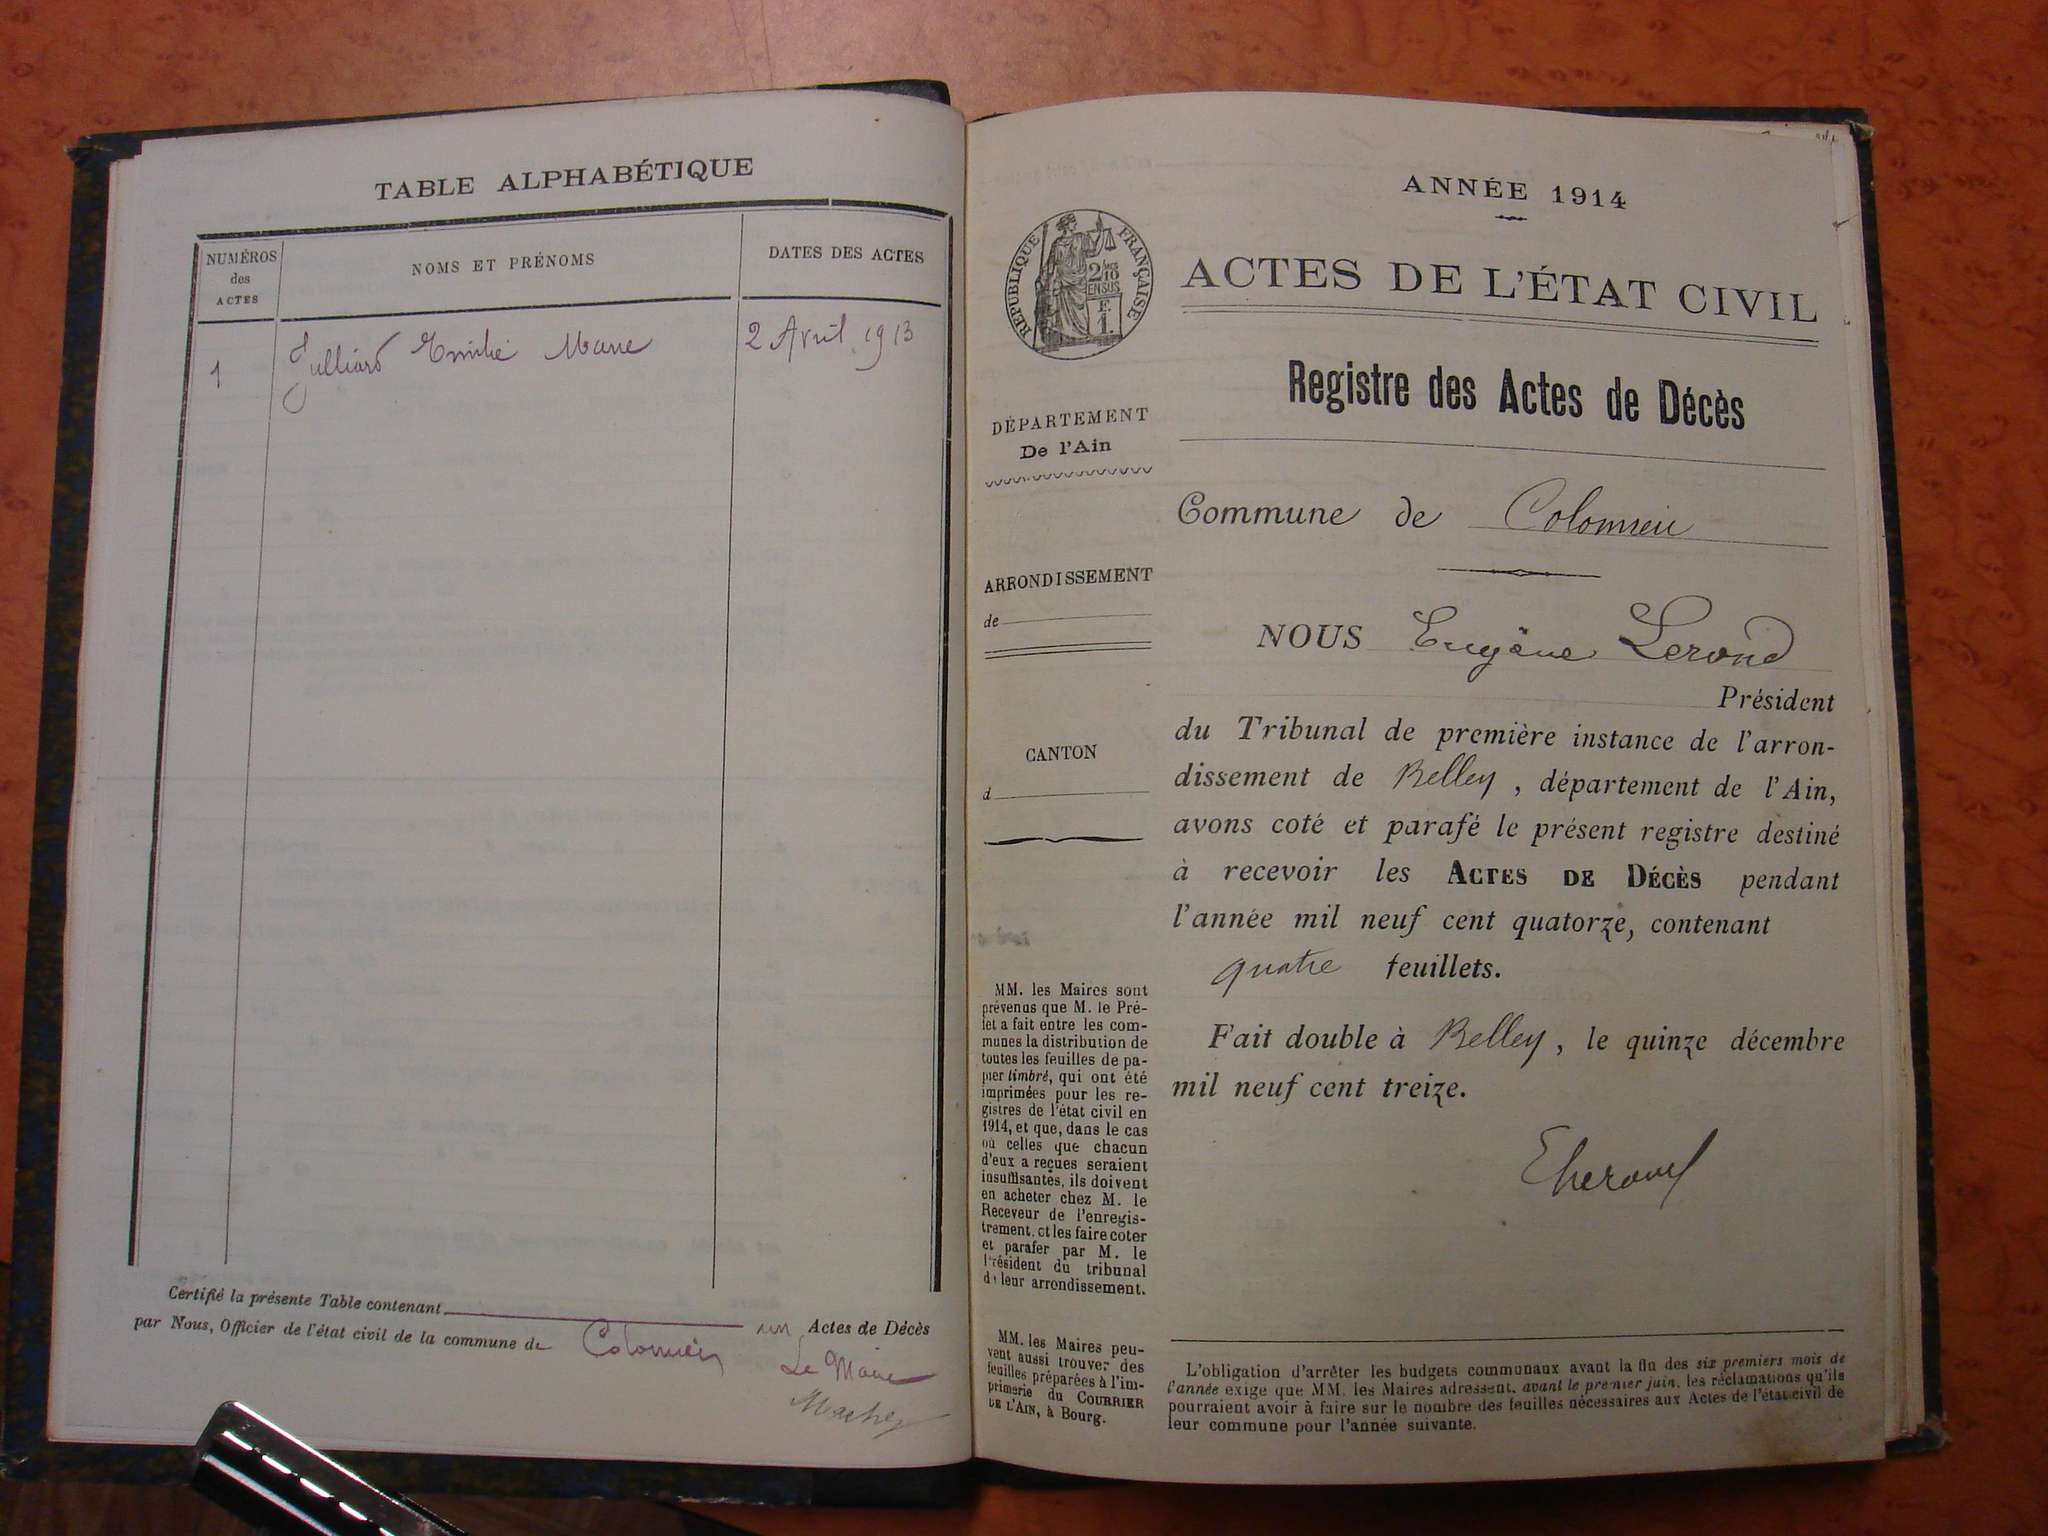 TABLE ALPHABÉTIQUE
NUMÉROS
des
ACTES
NOMS ET PRÉNOMS
DATES DES ACTES
1
Julliard Emilie Marie
2 Avril 1913
Certifié la présente Table contenant un Actes de Décès
par Nous, Officier de l'état civil de la commune de Colomieu
Le Maire
ANNÉE 1914
RÉPUBLIQUE FRANÇAISE
2/10
EN SUS
F.
1.
ACTES DE L'ÉTAT CIVIL
Registre des Actes de Décès
DÉPARTEMENT
De l'Ain
ARRONDISSEMENT
de
CANTON
d
MM. les Maires sont
prévenus que M. le Pré-
fet a fait entre les com-
munes la distribution de
toutes les feuilles de pa-
pier timbré, qui ont été
imprimées pour les re-
gistres de l'état civil en
1914, et que, dans le cas
où celles que chacun
d'eux a reçues seraient
insuffisantes, ils doivent
en acheter chez M. le
Receveur de l'enregis-
trement, et les faire coter
et parafer par M. le
Président du tribunal
de leur arrondissement.
MM. les Maires peu-
vent aussi trouver des
feuilles préparées à l'im-
primerie du COURRIER
DE L'AIN, à Bourg.
Commune de Colomieu
NOUS Eugène Lerond
Président
du Tribunal de première instance de l'arron-
dissement de Belley, département de l'Ain,
avons coté et parafé le présent registre destiné
à recevoir les ACTES DE DÉCÈS pendant
l'année mil neuf cent quatorze, contenant
quatre feuillets.
Fait double à Belley, le quinze décembre
mil neuf cent treize.
L'obligation d'arrêter les budgets communaux avant la fin des six premiers mois de
l'année exige que MM. les Maires adressent, avant le premier juin, les réclamations qu'ils
pourraient avoir à faire sur le nombre des feuilles nécessaires aux Actes de l'état civil de
leur commune pour l'année suivante.